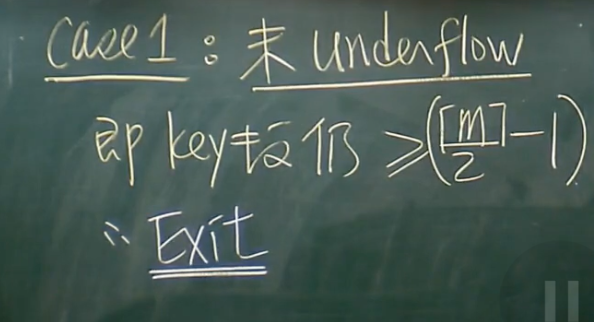 Case 1：未 underflow
即 key 数仍 ≥ (⌈m/2⌉-1)
∴ Exit